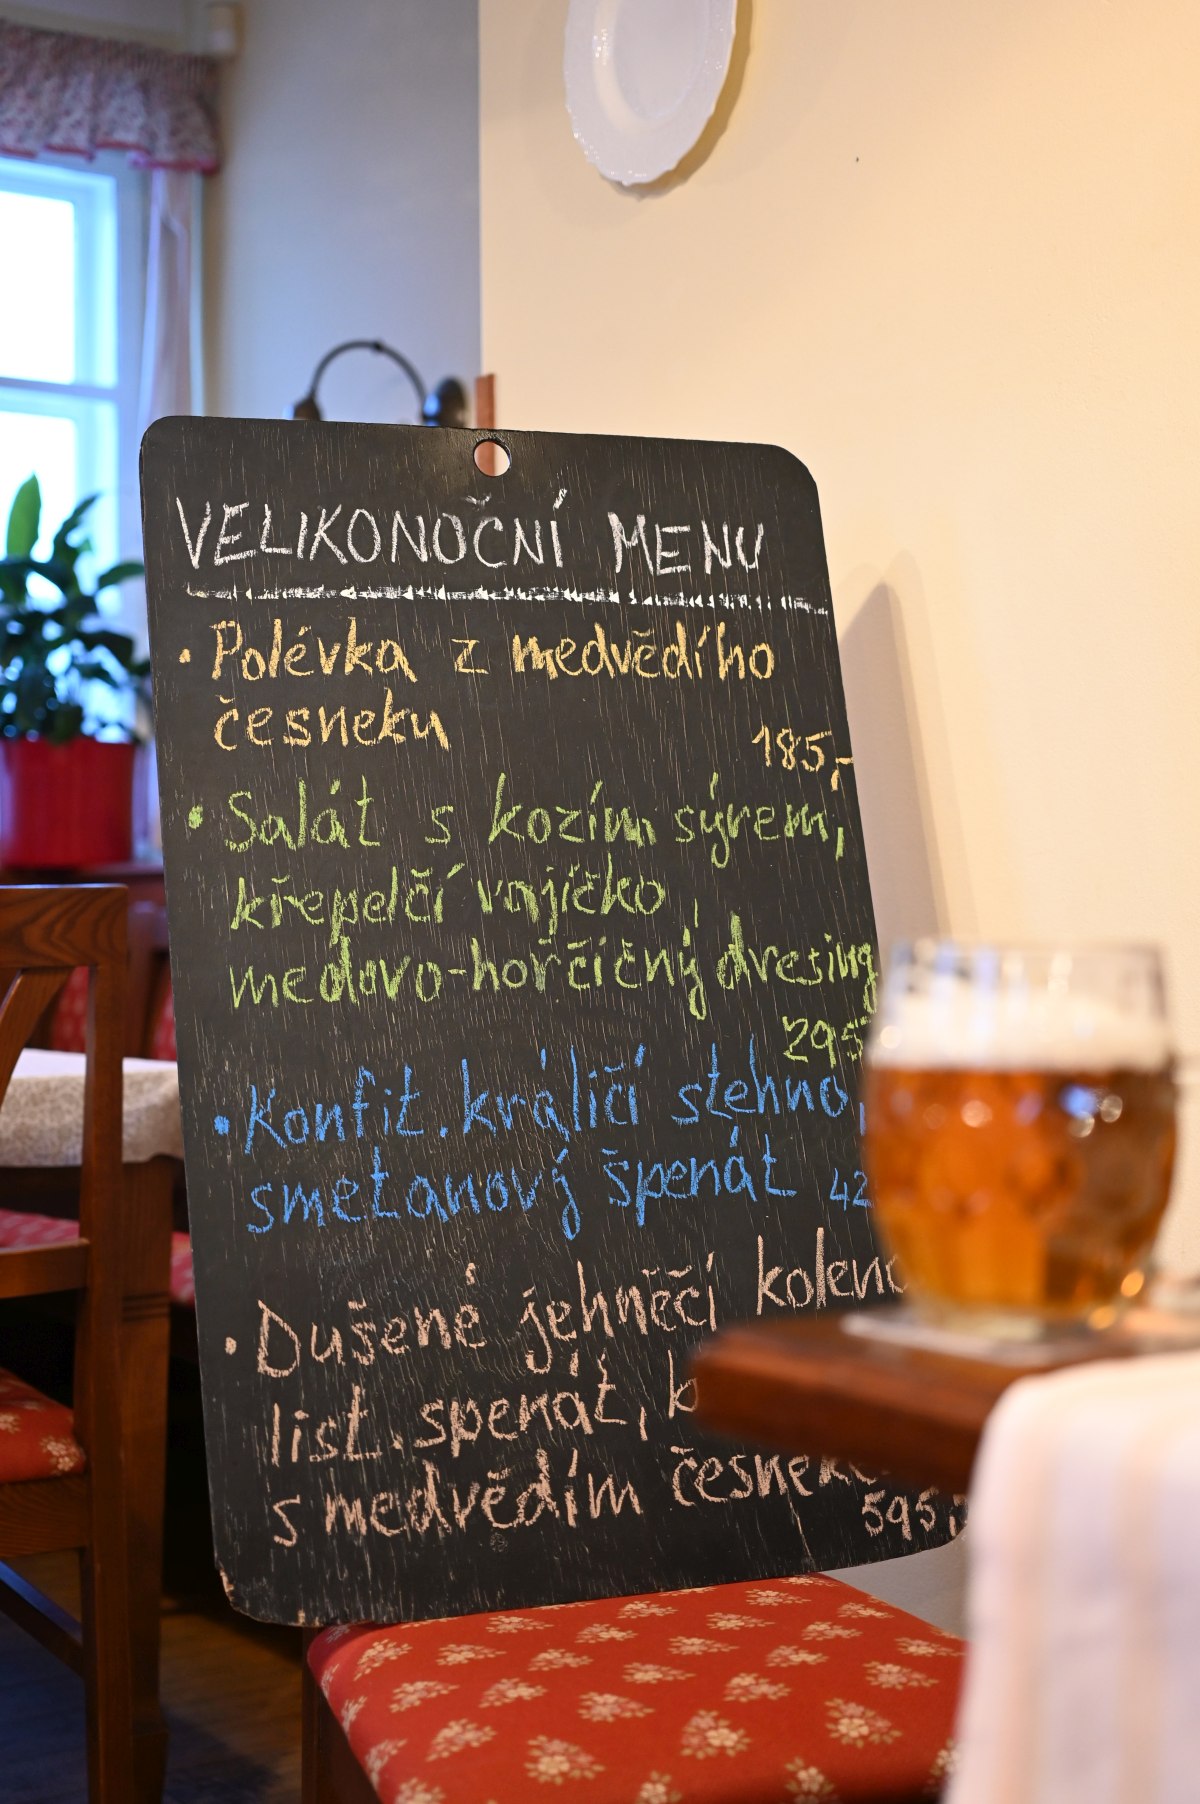 VELIKONOČNÍ MENU
• Polévka z medvědího
česneku
185,-
• Salát s kozím sýrem,
křepelčí vajíčko,
medovo-hořčičný dresing
295
• Konfit. králičí stehno,
smetanový špenát 42
• Dušené jehněčí kolen
list. špenát,
s medvědím česnek
595,-